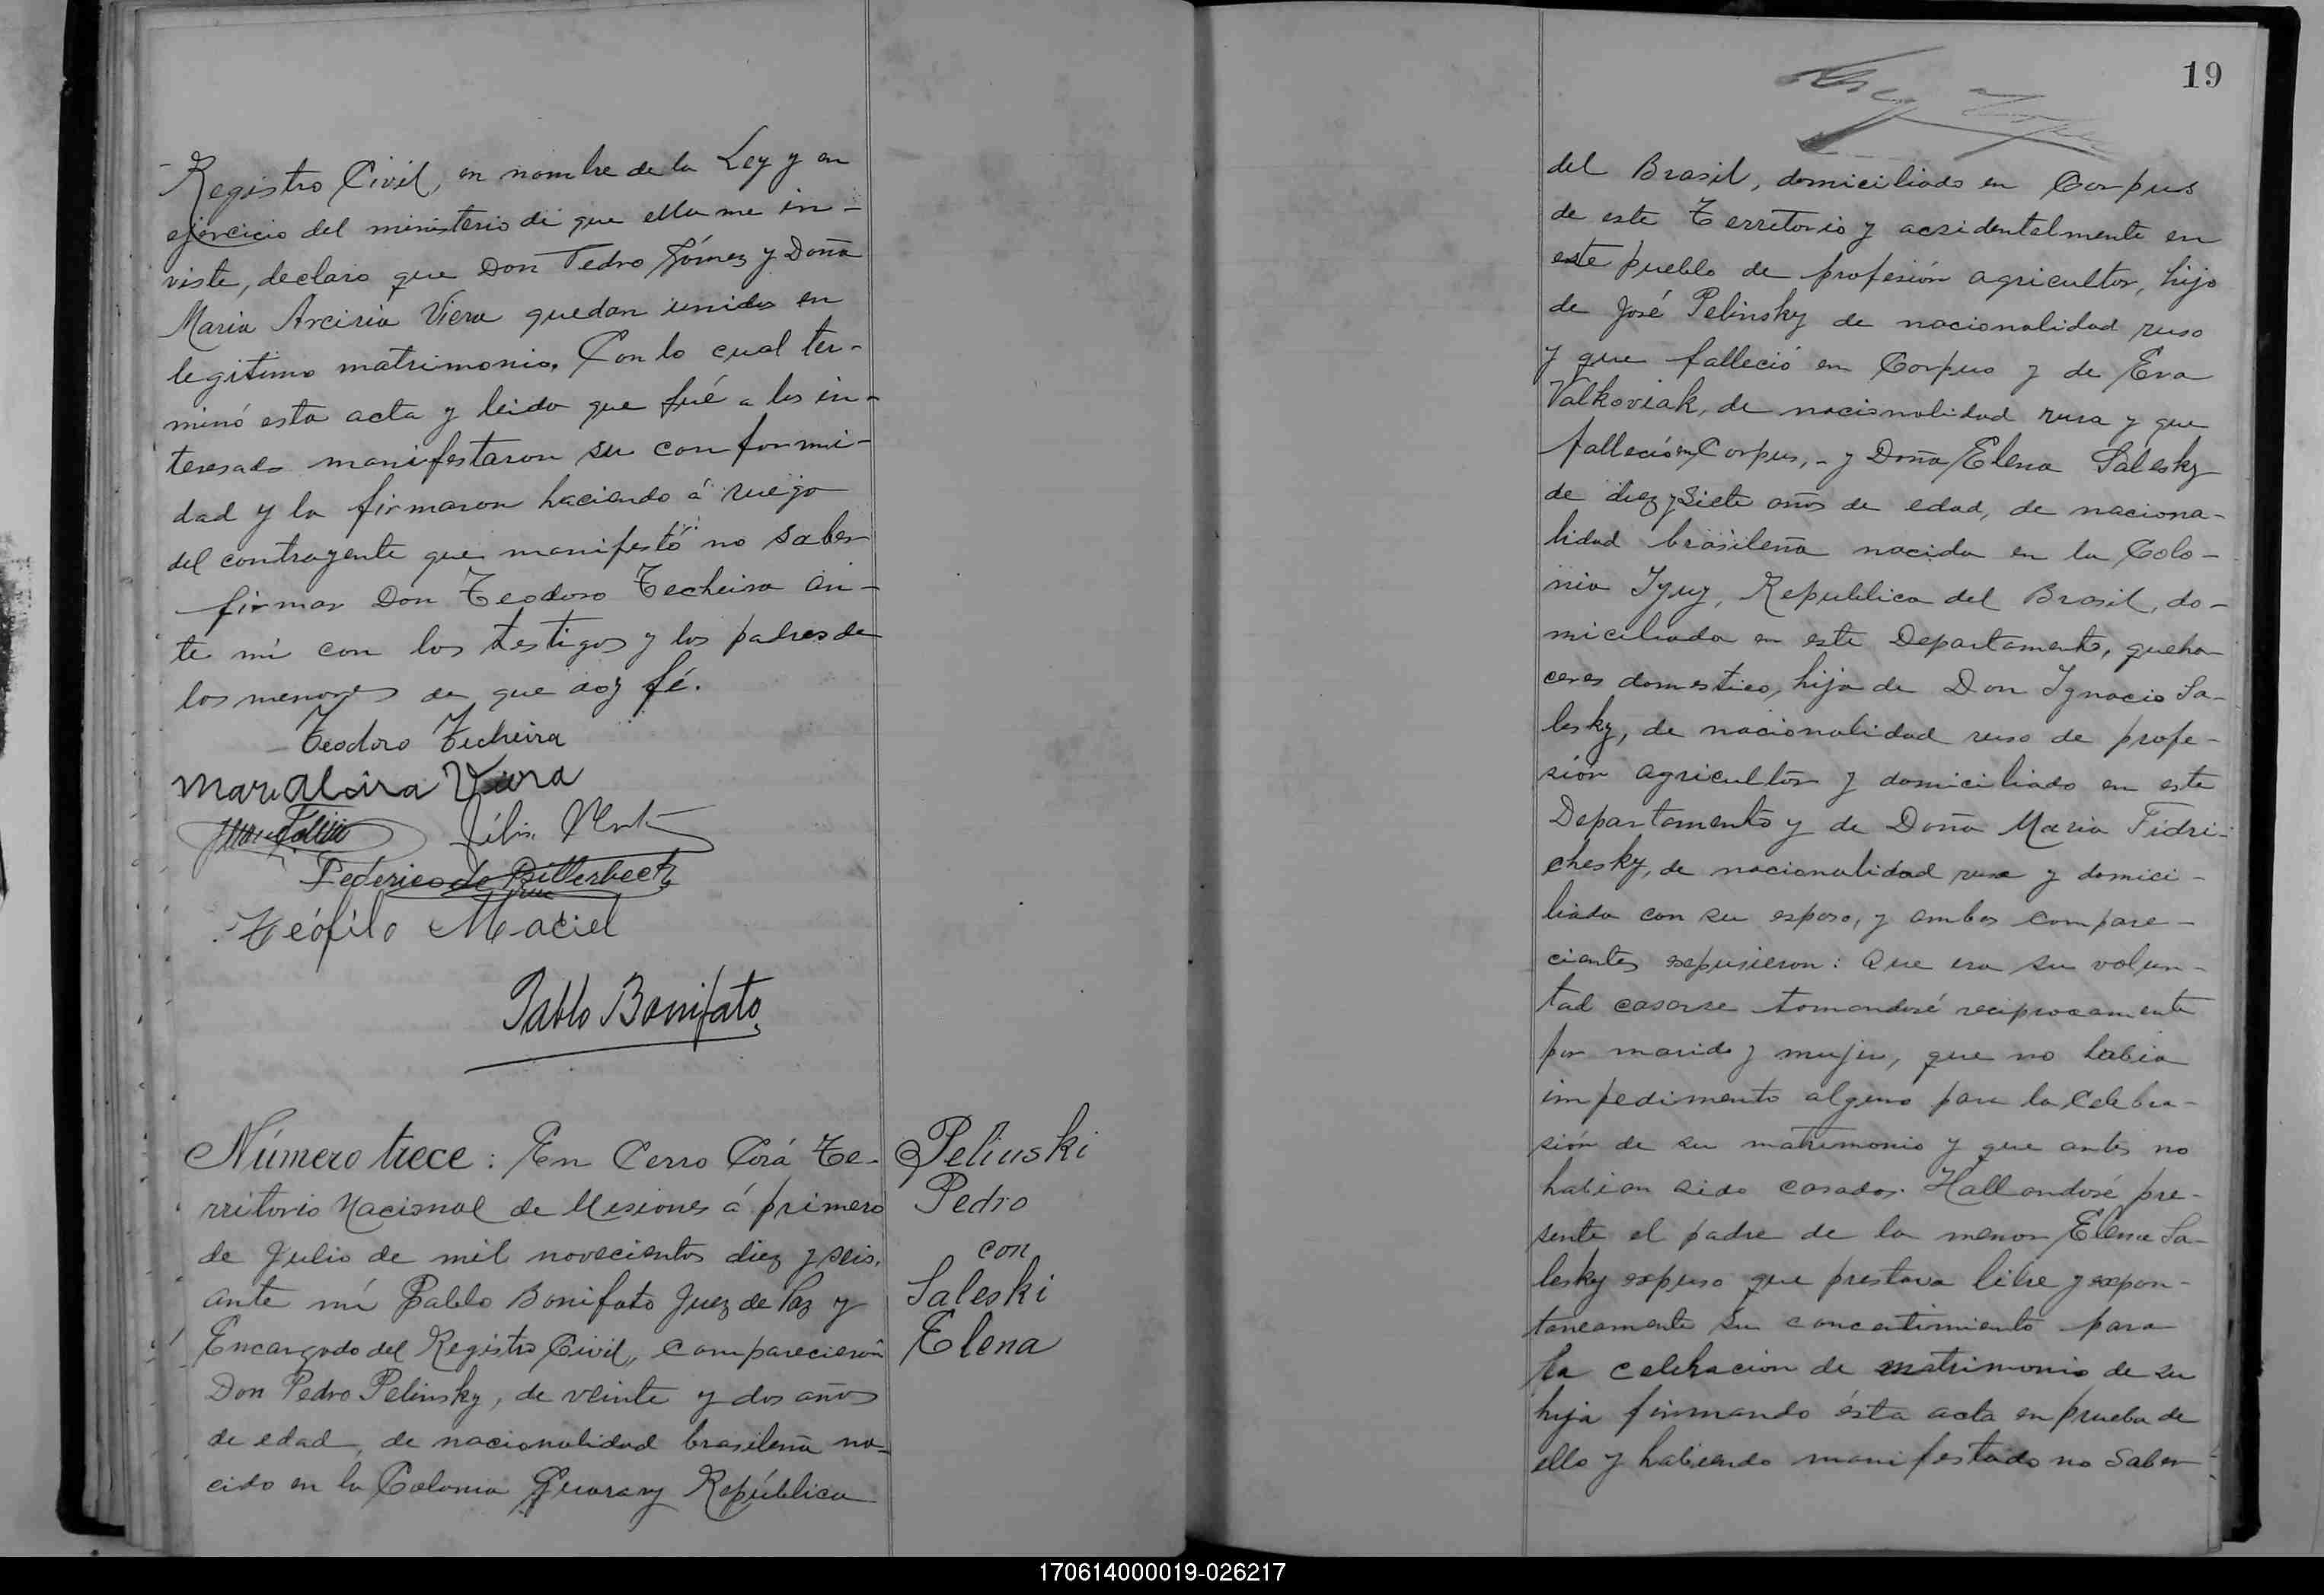 Registro Civil, en nombre de la Ley y en
ejercicio del ministerio de que ella me in-
viste, declaro que Don Pedro Gómez y Doña
Maria Arciria Viera quedan unidos en
legitimo matrimonio. Con lo cual ter-
minó esta acta y leida que fué a los in-
teresado manifestaron su conformi-
dad y la firmaron haciendo á ruego
del contrayente que manifestó no saber
firmar Don Teodoro Techeira an-
te mi con los testigos y los padres de
los menores de que doy fé.
Teodoro Techeira
Mari Alsira Viera
Federico de Bitterbeck
Teófilo Maciel
Pablo Bonifato
Número trece: En Cerro Corá Te-
rritorio Nacional de Misiones á primero
de Julio de mil novecientos diez y seis,
ante mí Pablo Bonifato Juez de Paz y
Encargado del Registro Civil, comparecieron
Don Pedro Pelinsky, de veinte y dos años
de edad, de nacionalidad brasileña na-
cido en la Colonia Guarany República
Peliuski
Pedro
con
Saleski
Elena
19
del Brasil, domiciliado en Corpus
de este Territorio y acsidentalmente en
este pueblo de profesión agricultor, hijo
de José Pelinsky de nacionalidad ruso
y que falleció en Corpus y de Eva
Valkoviak, de nacionalidad rusa y que
falleció en Corpus, - y Doña Elena Salesky
de diez y siete años de edad, de naciona-
lidad brasileña nacida en la Colo-
nia Yjuy, Republica del Brasil, do-
miciliada en este Departamento, queha
ceres domestico, hija de Don Ygnacio Sa-
lesky, de nacionalidad ruso de profe-
sión agricultor y domiciliado en este
Departamento y de Doña Maria Fidri-
chesky, de nacionalidad rusa y domici-
liada con su esposo, y ambos compare-
cientes expusieron: Que era su volun-
tad casarse tomandosé reciprocamente
por marido y mujer, que no habia
impedimento alguno para la celebra-
sión de su matrimonio y que antes no
habian sido casados. Hallandosé pre-
sente el padre de la menor Elena Sa-
lesky expuso que prestava libre y expon-
taneamente su concentimiento para
la celebracion de matrimonio de su
hija firmando ésta acta en prueba de
ello y habiendo manifestado no saber
170614000019-026217